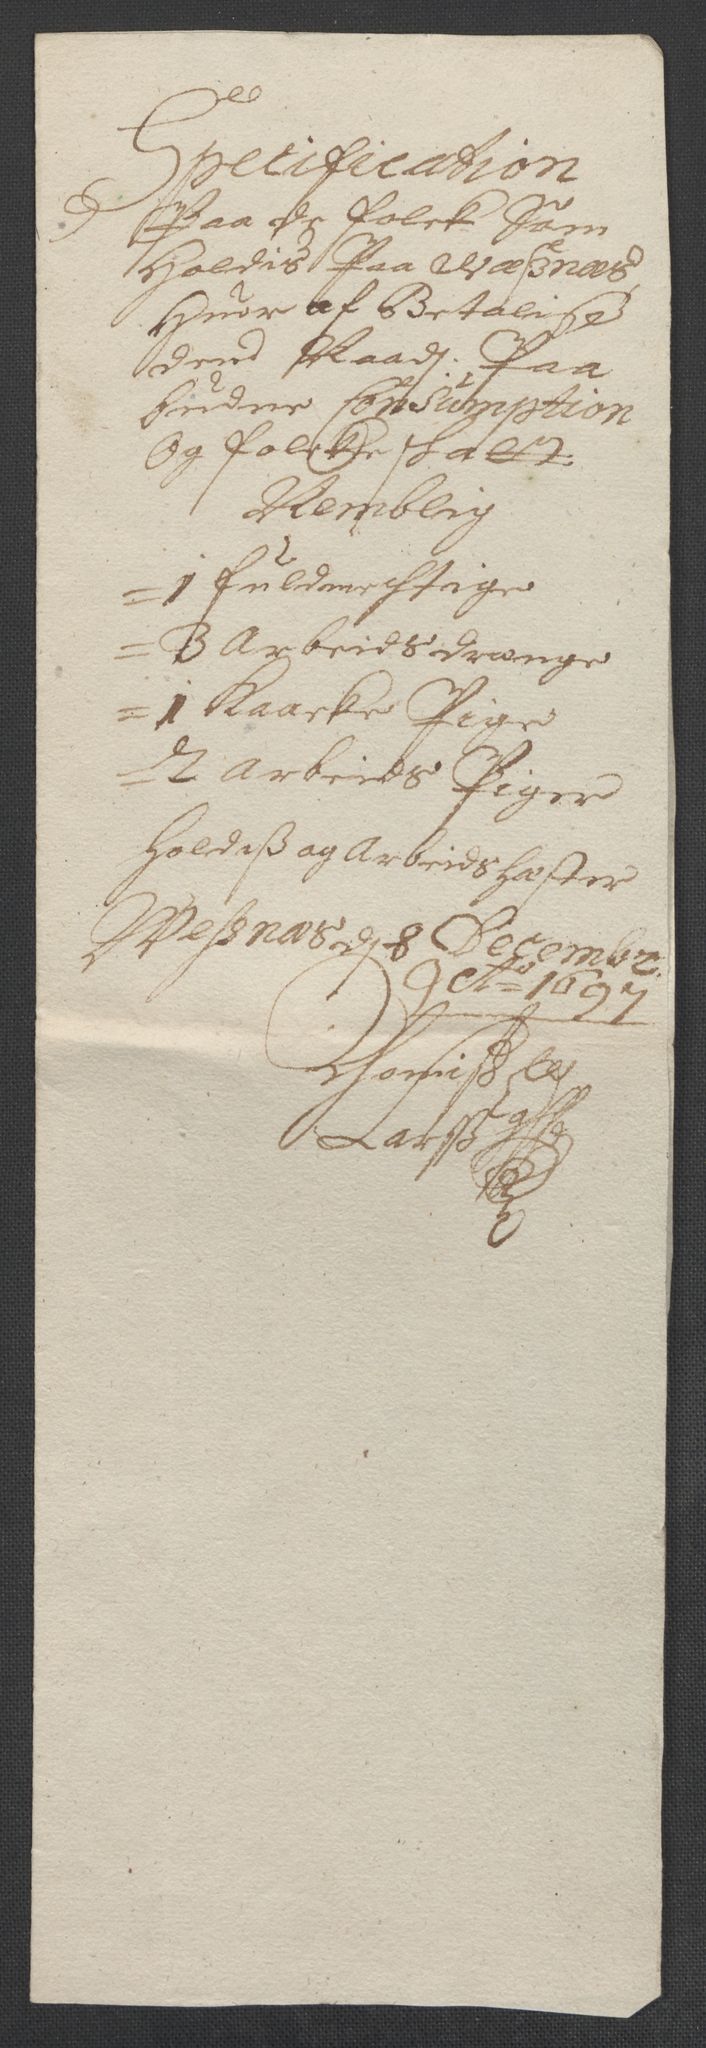 Specification
Paa de folck Som
Holdis Paa Wæsnæs
Huor af Betalis
dend Naad: Paa
budne Consumption
Og folcke skatt
Nemblig
= 1 fuldmechtige
= 3 Arbeids drænge
= 1 Kaacke Pige
= 2 Arbeids Piger
Holdeß og Arbeids hæster
Wesnæs dj 8 Decembr
Ao = 1697
Thomiß
Larsß